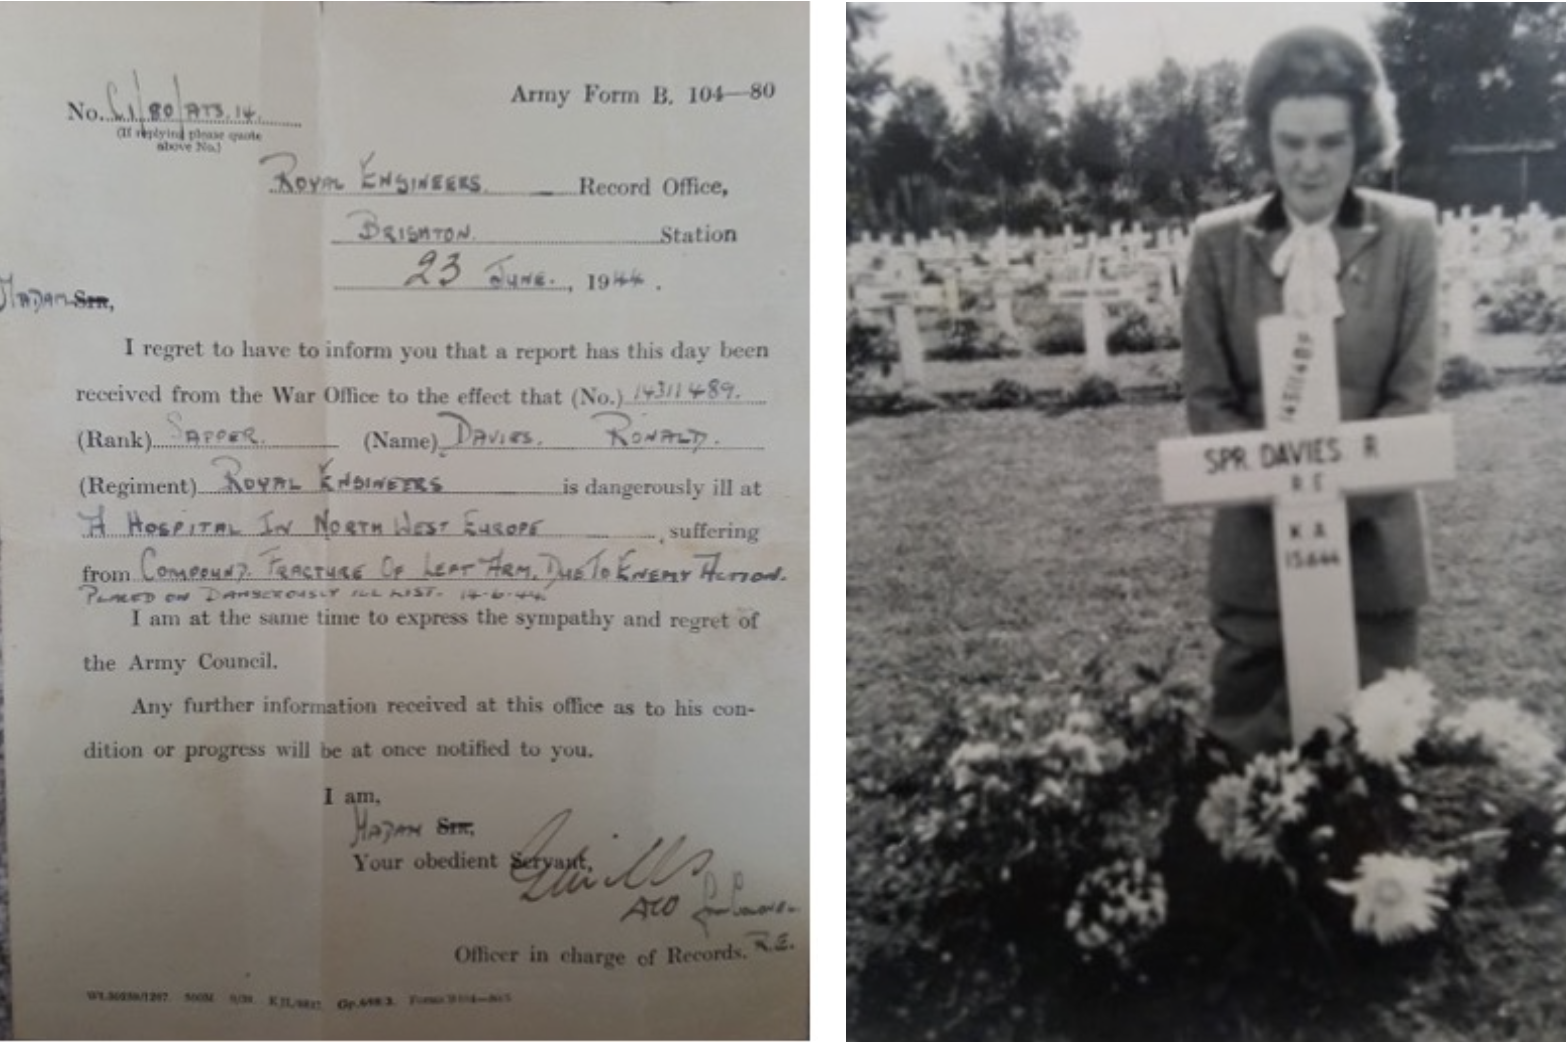 Army Form B. 104—80
No. C1/80/ATS.14.
(If replying please quote
above No.)
ROYAL ENGINEERS. Record Office,
BRIGHTON. Station
23 JUNE., 1944.
MADAM Sir,
I regret to have to inform you that a report has this day been
received from the War Office to the effect that (No.) 14311489.
(Rank) SAPPER. (Name) DAVIES. RONALD.
(Regiment) ROYAL ENGINEERS is dangerously ill at
A HOSPITAL IN NORTH WEST EUROPE, suffering
from COMPOUND. FRACTURE OF LEFT ARM. DUE TO ENEMY ACTION.
PLACED ON DANGEROUSLY ILL LIST. 14-6-44
I am at the same time to express the sympathy and regret of
the Army Council.
Any further information received at this office as to his con-
dition or progress will be at once notified to you.
I am,
MADAM Sir,
Your obedient Servant,
Officer in charge of Records. R.E.
14311489
SPR. DAVIES R
R E
K A
15.6.44